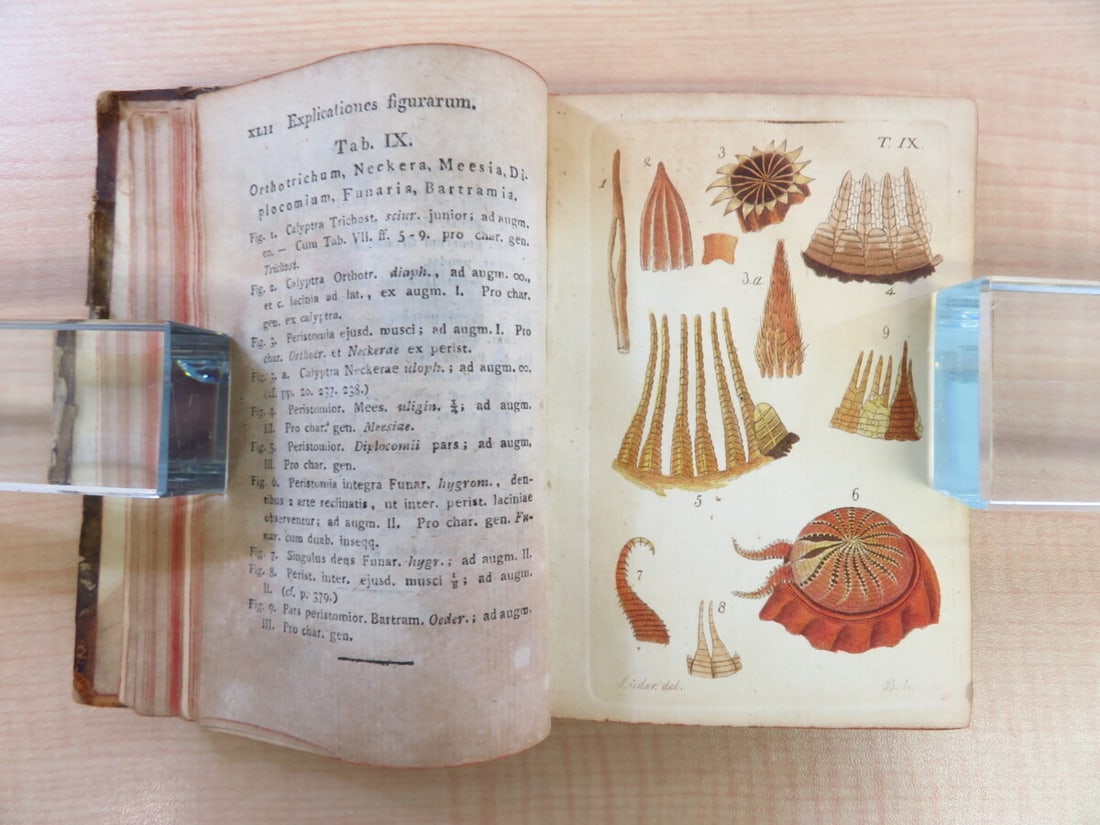 XLII Explicationes figurarum.
Tab. IX.
Orthotrichum, Neckera, Meesia, Di-
plocomium, Funaria, Bartramia.
Fig. 1. Calyptra Trichost. sciur. junior; ad augm.
oo. — Cum Tab. VII. ff. 5-9. pro char. gen.
Trichost.
Fig. 2. Calyptra Orthotr. diaph., ad augm. oo.,
et c. lacinia ad lat., ex augm. I. Pro char.
gen. ex calyptra.
Fig. 3. Peristomia ejusd. musci; ad augm. I. Pro
char. Orthotr. et Neckerae ex perist.
Fig. 3. a. Calyptra Neckerae uloph.; ad augm. oo.
(cf. pp. 20. 237. 238.)
Fig. 4. Peristomior. Mees. uligin. ¼; ad augm.
III. Pro char. gen. Meesiae.
Fig. 5. Peristomior. Diplocomii pars; ad augm.
III. Pro char. gen.
Fig. 6. Peristomia integra Funar. hygrom., den-
tibus 2 arte reclinatis, ut inter. perist. laciniae
observentur; ad augm. II. Pro char. gen. Fu-
nar. cum duab. inseqq.
Fig. 7. Singulus dens Funar. hygr.; ad augm. II.
Fig. 8. Perist. inter. ejusd. musci ⅛; ad augm.
II. (cf. p. 379.)
Fig. 9. Pars peristomior. Bartram. Oeder.; ad augm.
III. Pro char. gen.
T. IX.
1
2
3
4
3.a
9
5
6
7
8
Lüder. del.